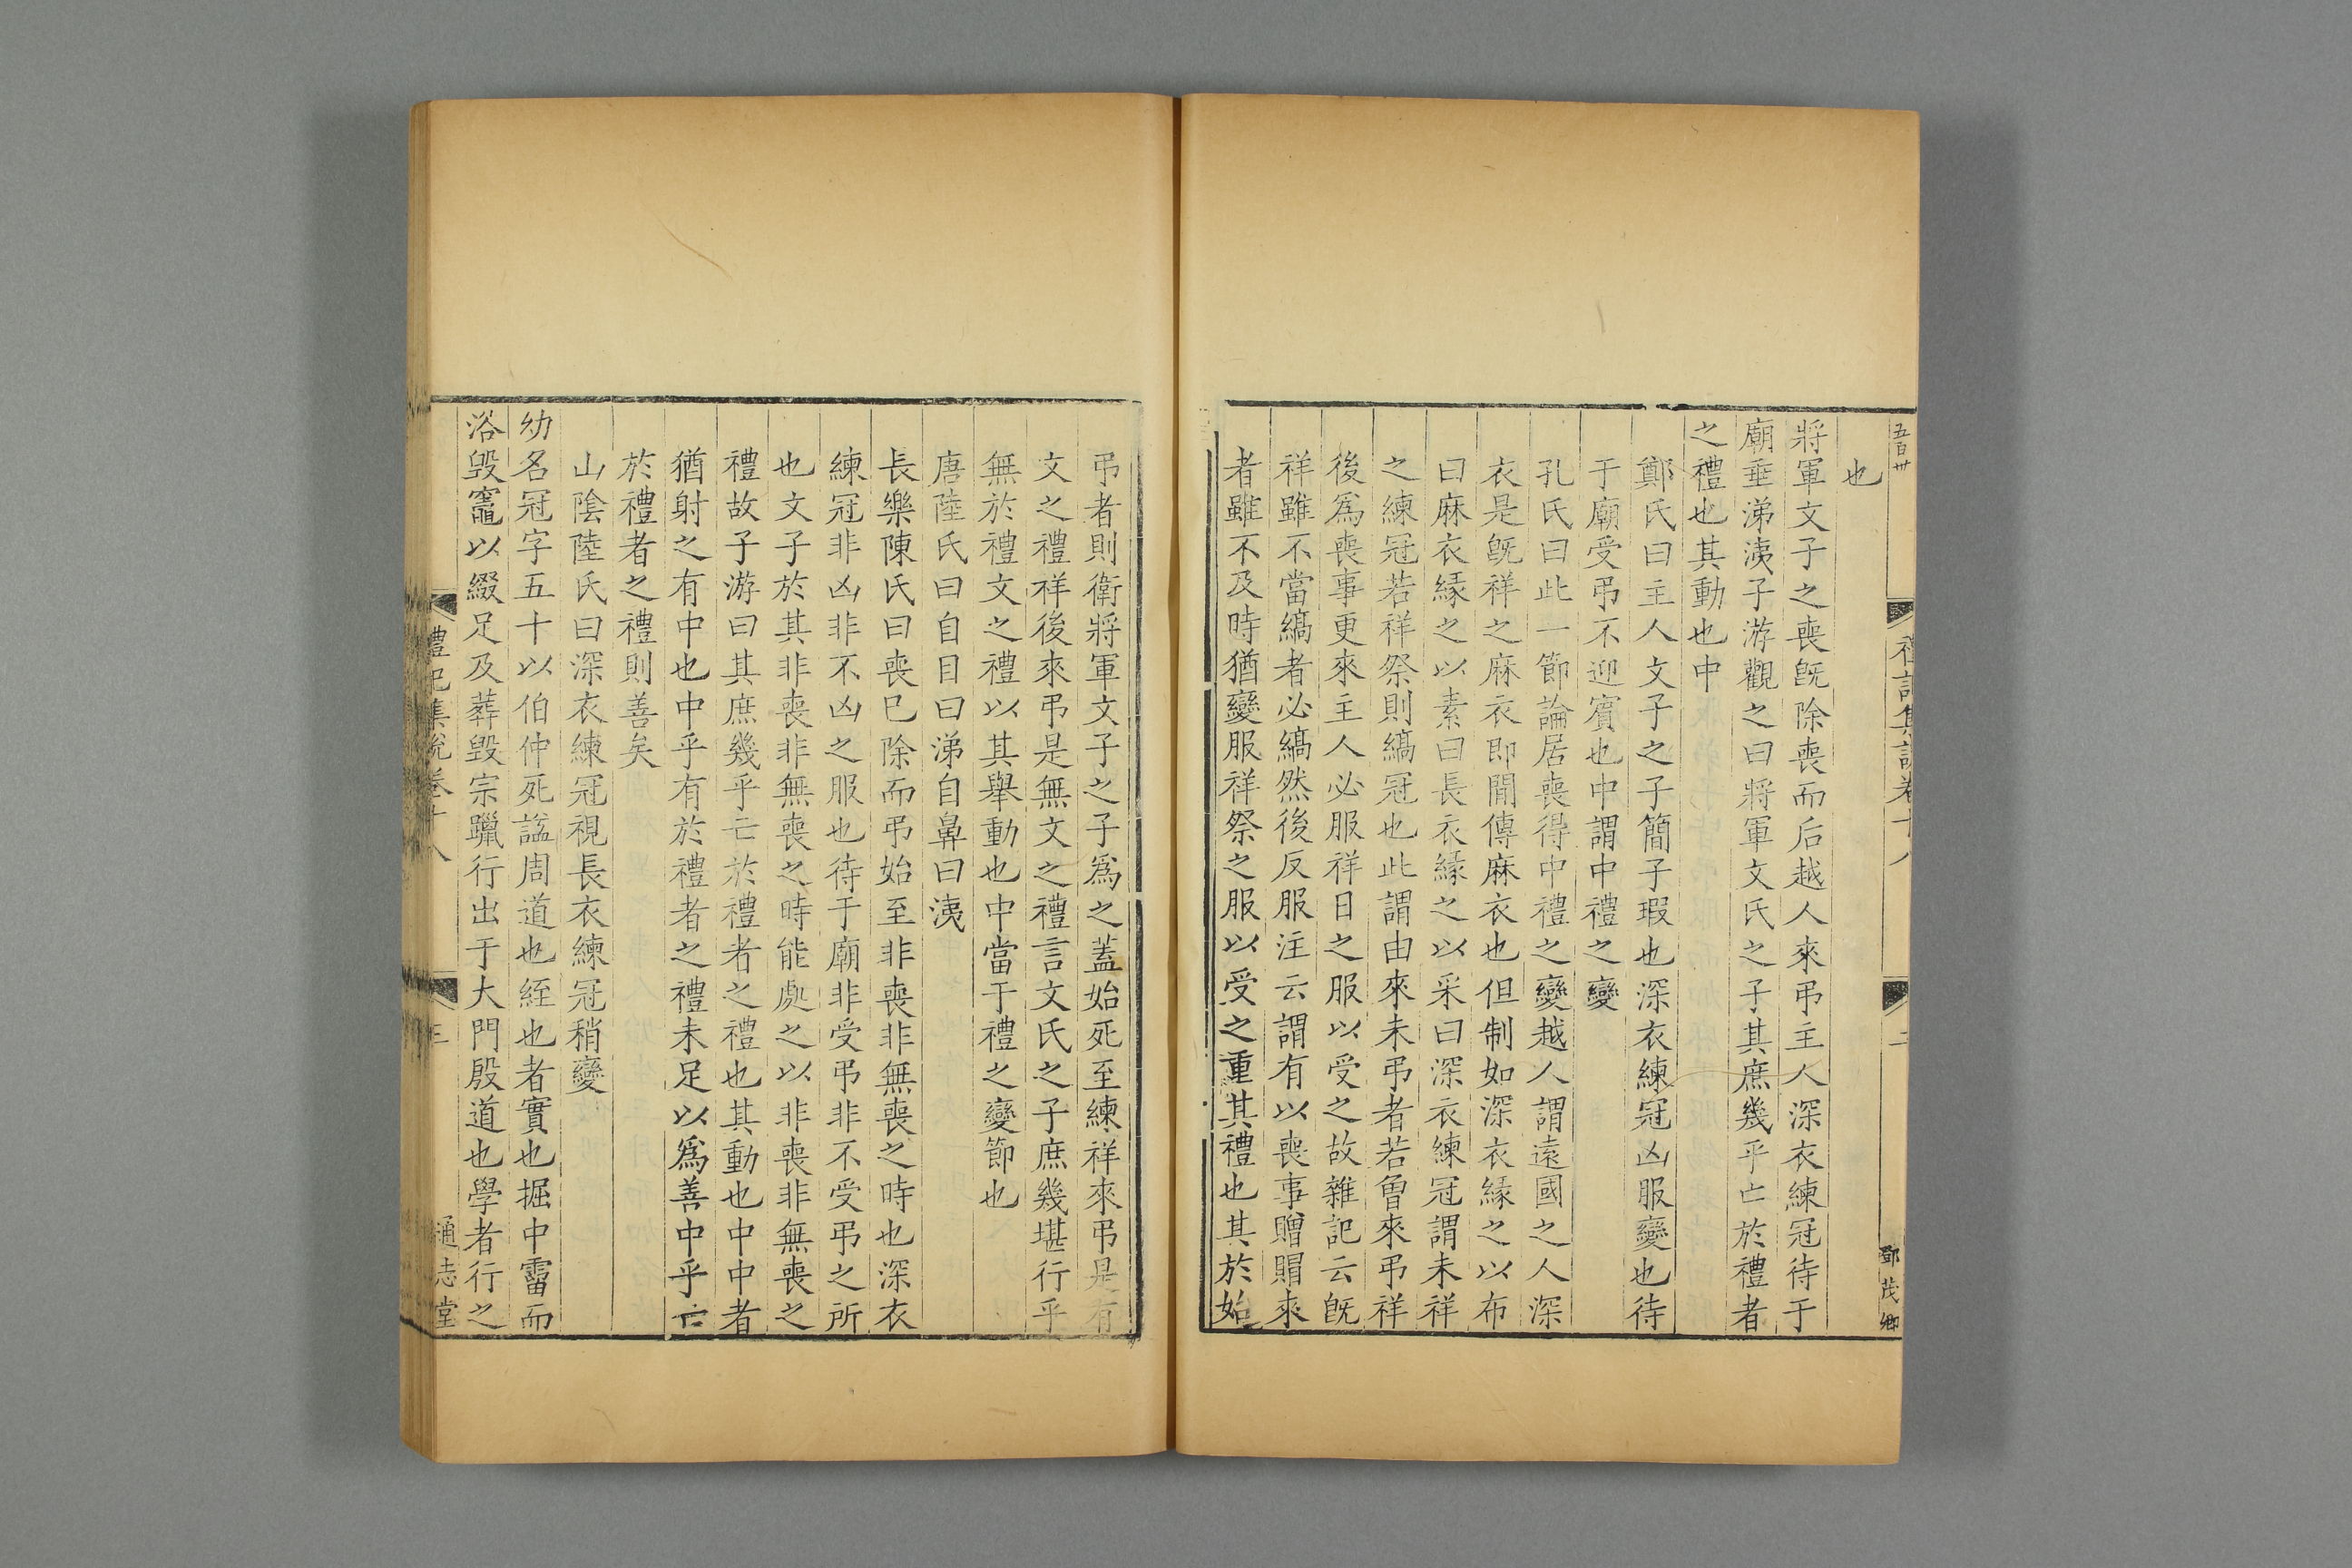 五百卅
禮記集說卷十八
二
鄧茂卿
也
將軍文子之喪旣除喪而后越人來弔主人深衣練冠待于
廟垂涕洟子游觀之曰將軍文氏之子其庶幾乎亡於禮者
之禮也其動也中
鄭氏曰主人文子之子簡子瑕也深衣練冠凶服變也待
于廟受弔不迎賓也中謂中禮之變
孔氏曰此一節論居喪得中禮之變越人謂遠國之人深
衣是旣祥之麻衣即閒傳麻衣也但制如深衣緣之以布
曰麻衣緣之以素曰長衣緣之以采曰深衣練冠謂未祥
之練冠若祥祭則縞冠也此謂由來未弔者若曾來弔祥
後爲喪事更來主人必服祥日之服以受之故雜記云旣
祥雖不當縞者必縞然後反服注云謂有以喪事贈賵來
者雖不及時猶變服祥祭之服以受之重其禮也其於始
弔者則衛將軍文子之子爲之蓋始死至練祥來弔是有
文之禮祥後來弔是無文之禮言文氏之子庶幾堪行乎
無於禮文之禮以其舉動也中當于禮之變節也
唐陸氏曰自目曰涕自鼻曰洟
長樂陳氏曰喪已除而弔始至非喪非無喪之時也深衣
練冠非凶非不凶之服也待于廟非受弔非不受弔之所
也文子於其非喪非無喪之時能處之以非喪非無喪之
禮故子游曰其庶幾乎亡於禮者之禮也其動也中中者
猶射之有中也中乎有於禮者之禮未足以爲善中乎亡
於禮者之禮則善矣
山陰陸氏曰深衣練冠視長衣練冠稍變
幼名冠字五十以伯仲死諡周道也絰也者實也掘中霤而
浴毁竈以綴足及葬毁宗躐行出于大門殷道也學者行之
禮記集說卷十八
三
通志堂